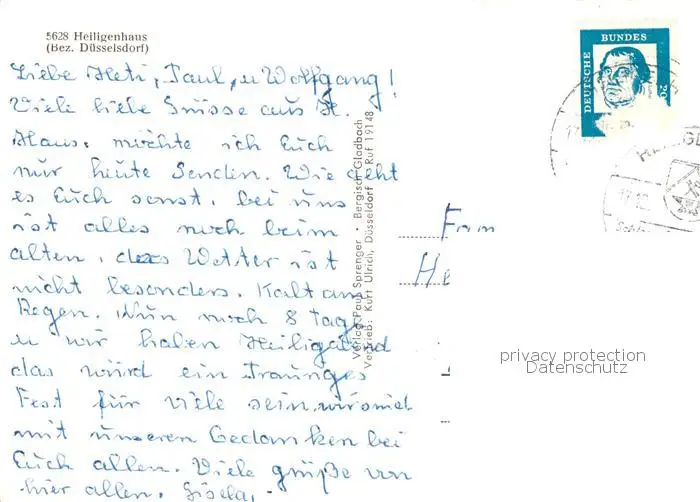 5628 Heiligenhaus
(Bez. Düsseldorf)
Liebe Heti, Paul, u Wolfgang!
Viele liebe Grüsse aus H.
Haus. möchte ich Euch
nur heute Senden. Wie geht
es Euch sonst, bei uns
ist alles noch beim
alten, das Wetter ist
nicht besonders. Kalt am
Regen. Nun noch 8 Tage
u wir haben Heiligabend
das würd ein Trauriges
Fest für viele sein. wir sind
mit unseren Gedanken bei
Euch allen. Viele grüße von
hier allen. Gisela.
Verlag Paul Sprenger • Bergisch Gladbach
Vertrieb: Kurt Ulrich, Düsseldorf Ruf 19148
DEUTSCHE BUNDES
20
17.12.
Fam
He
privacy protection
Datenschutz